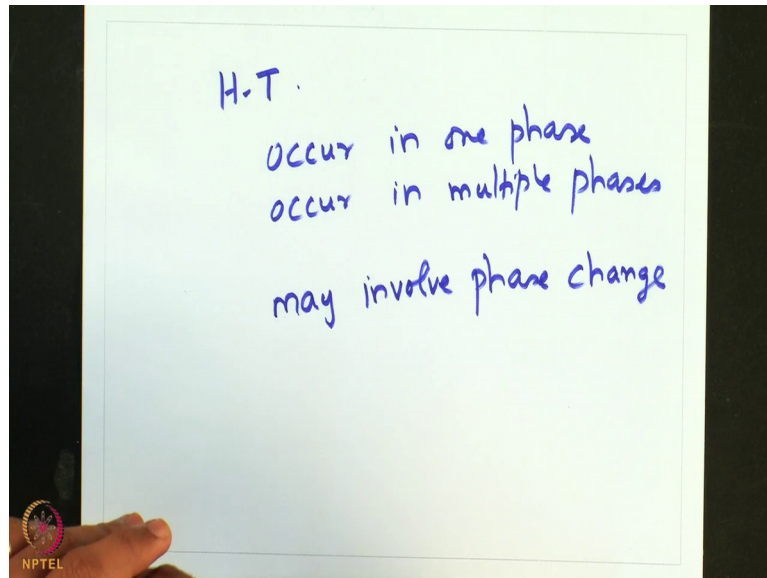 H.T.
occur in one phase
occur in multiple phases
may involve phase change
NPTEL